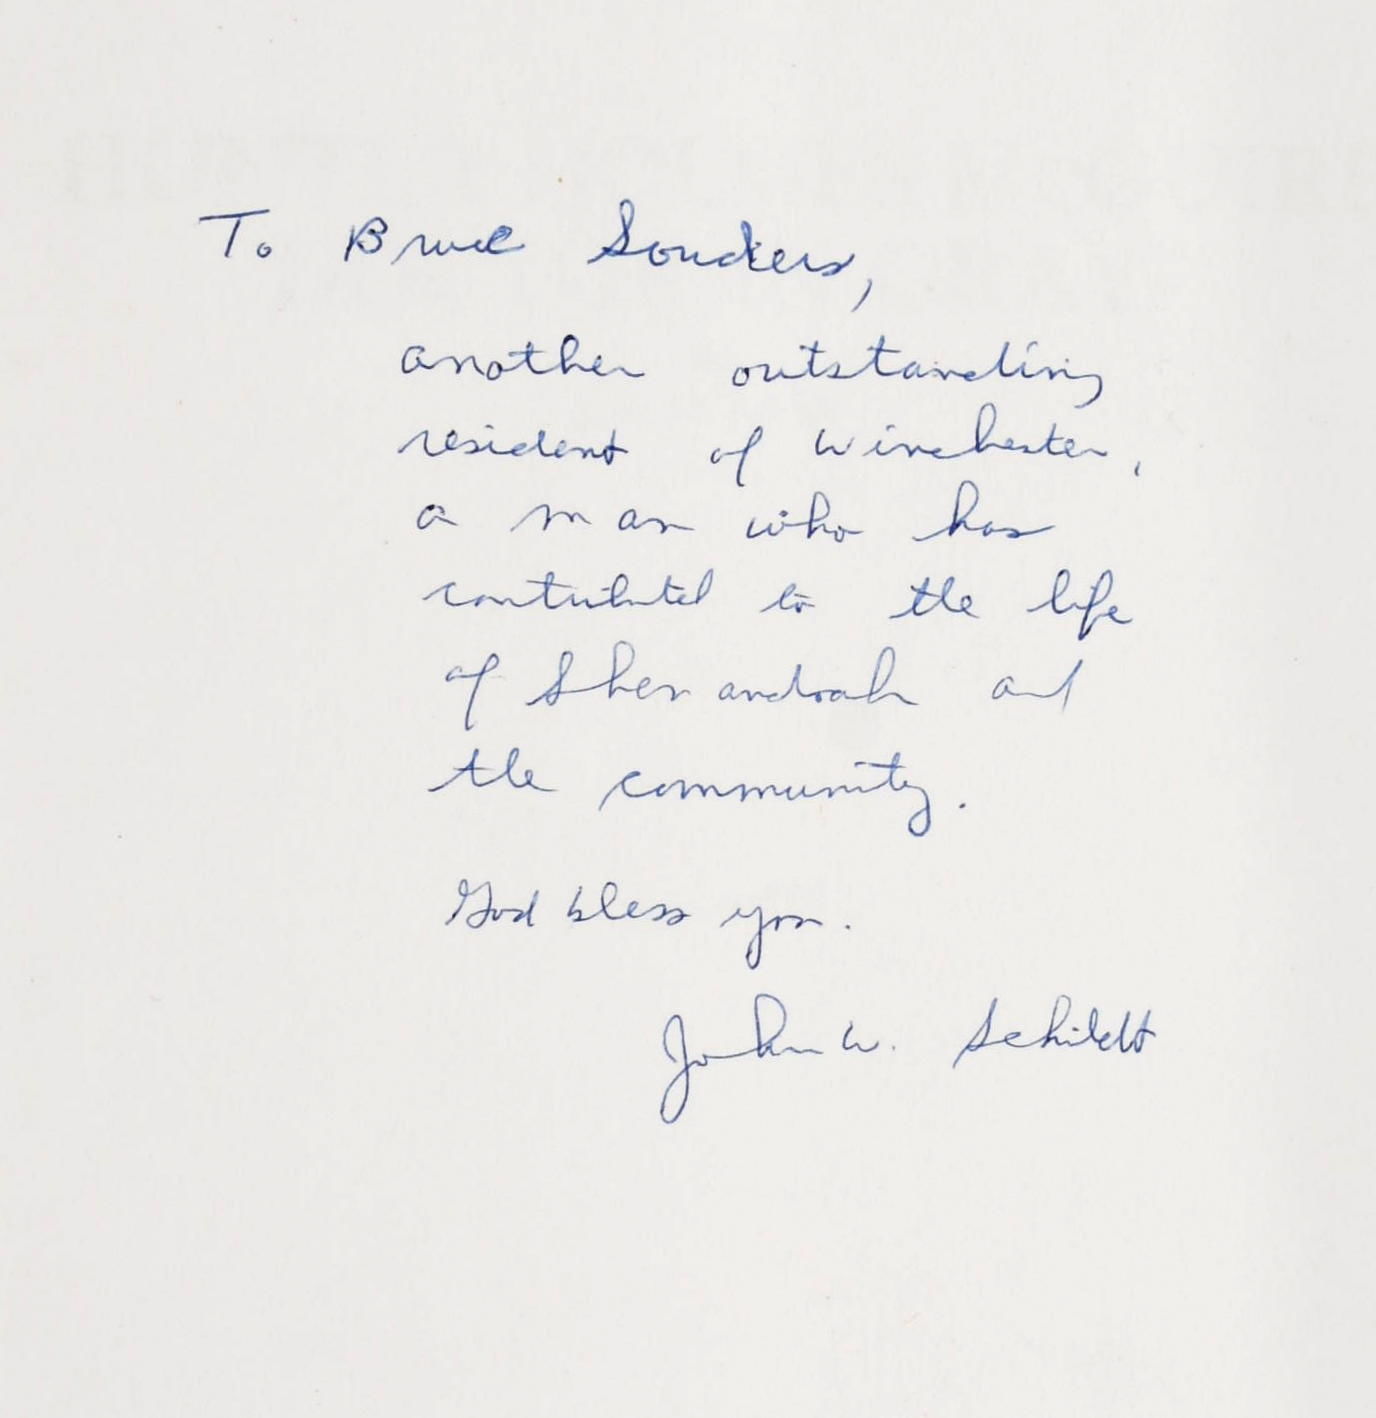 To Bruce Souders,
another outstanding
resident of Winchester,
a man who has
contributed to the life
of Shenandoah and
the community.
God bless you.
John W. Schildt